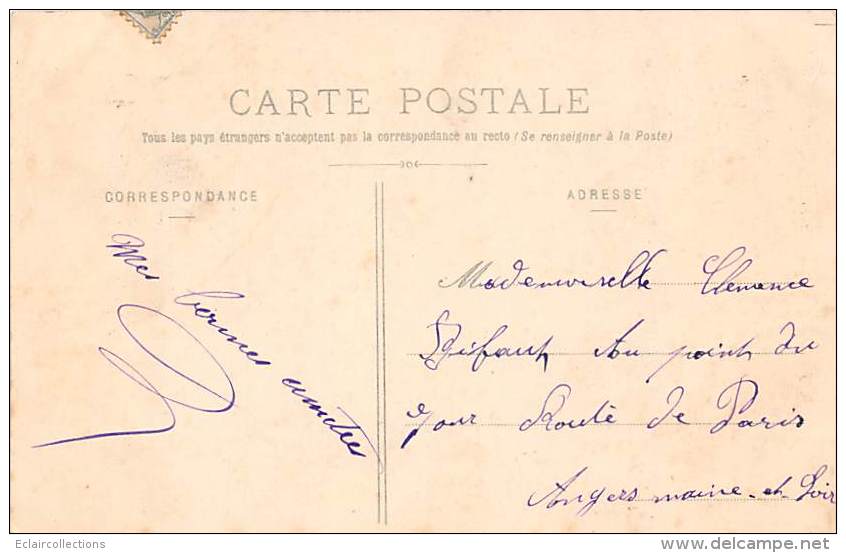 CARTE POSTALE
Tous les pays étrangers n'acceptent pas la correspondance au recto (Se renseigner à la Poste)
CORRESPONDANCE
ADRESSE
Mes bonnes amitiés
Mademoiselle Clemence
Au point du
jour Route de Paris
Angers maine-et-Loir
Eclaircollections
delcampe.net